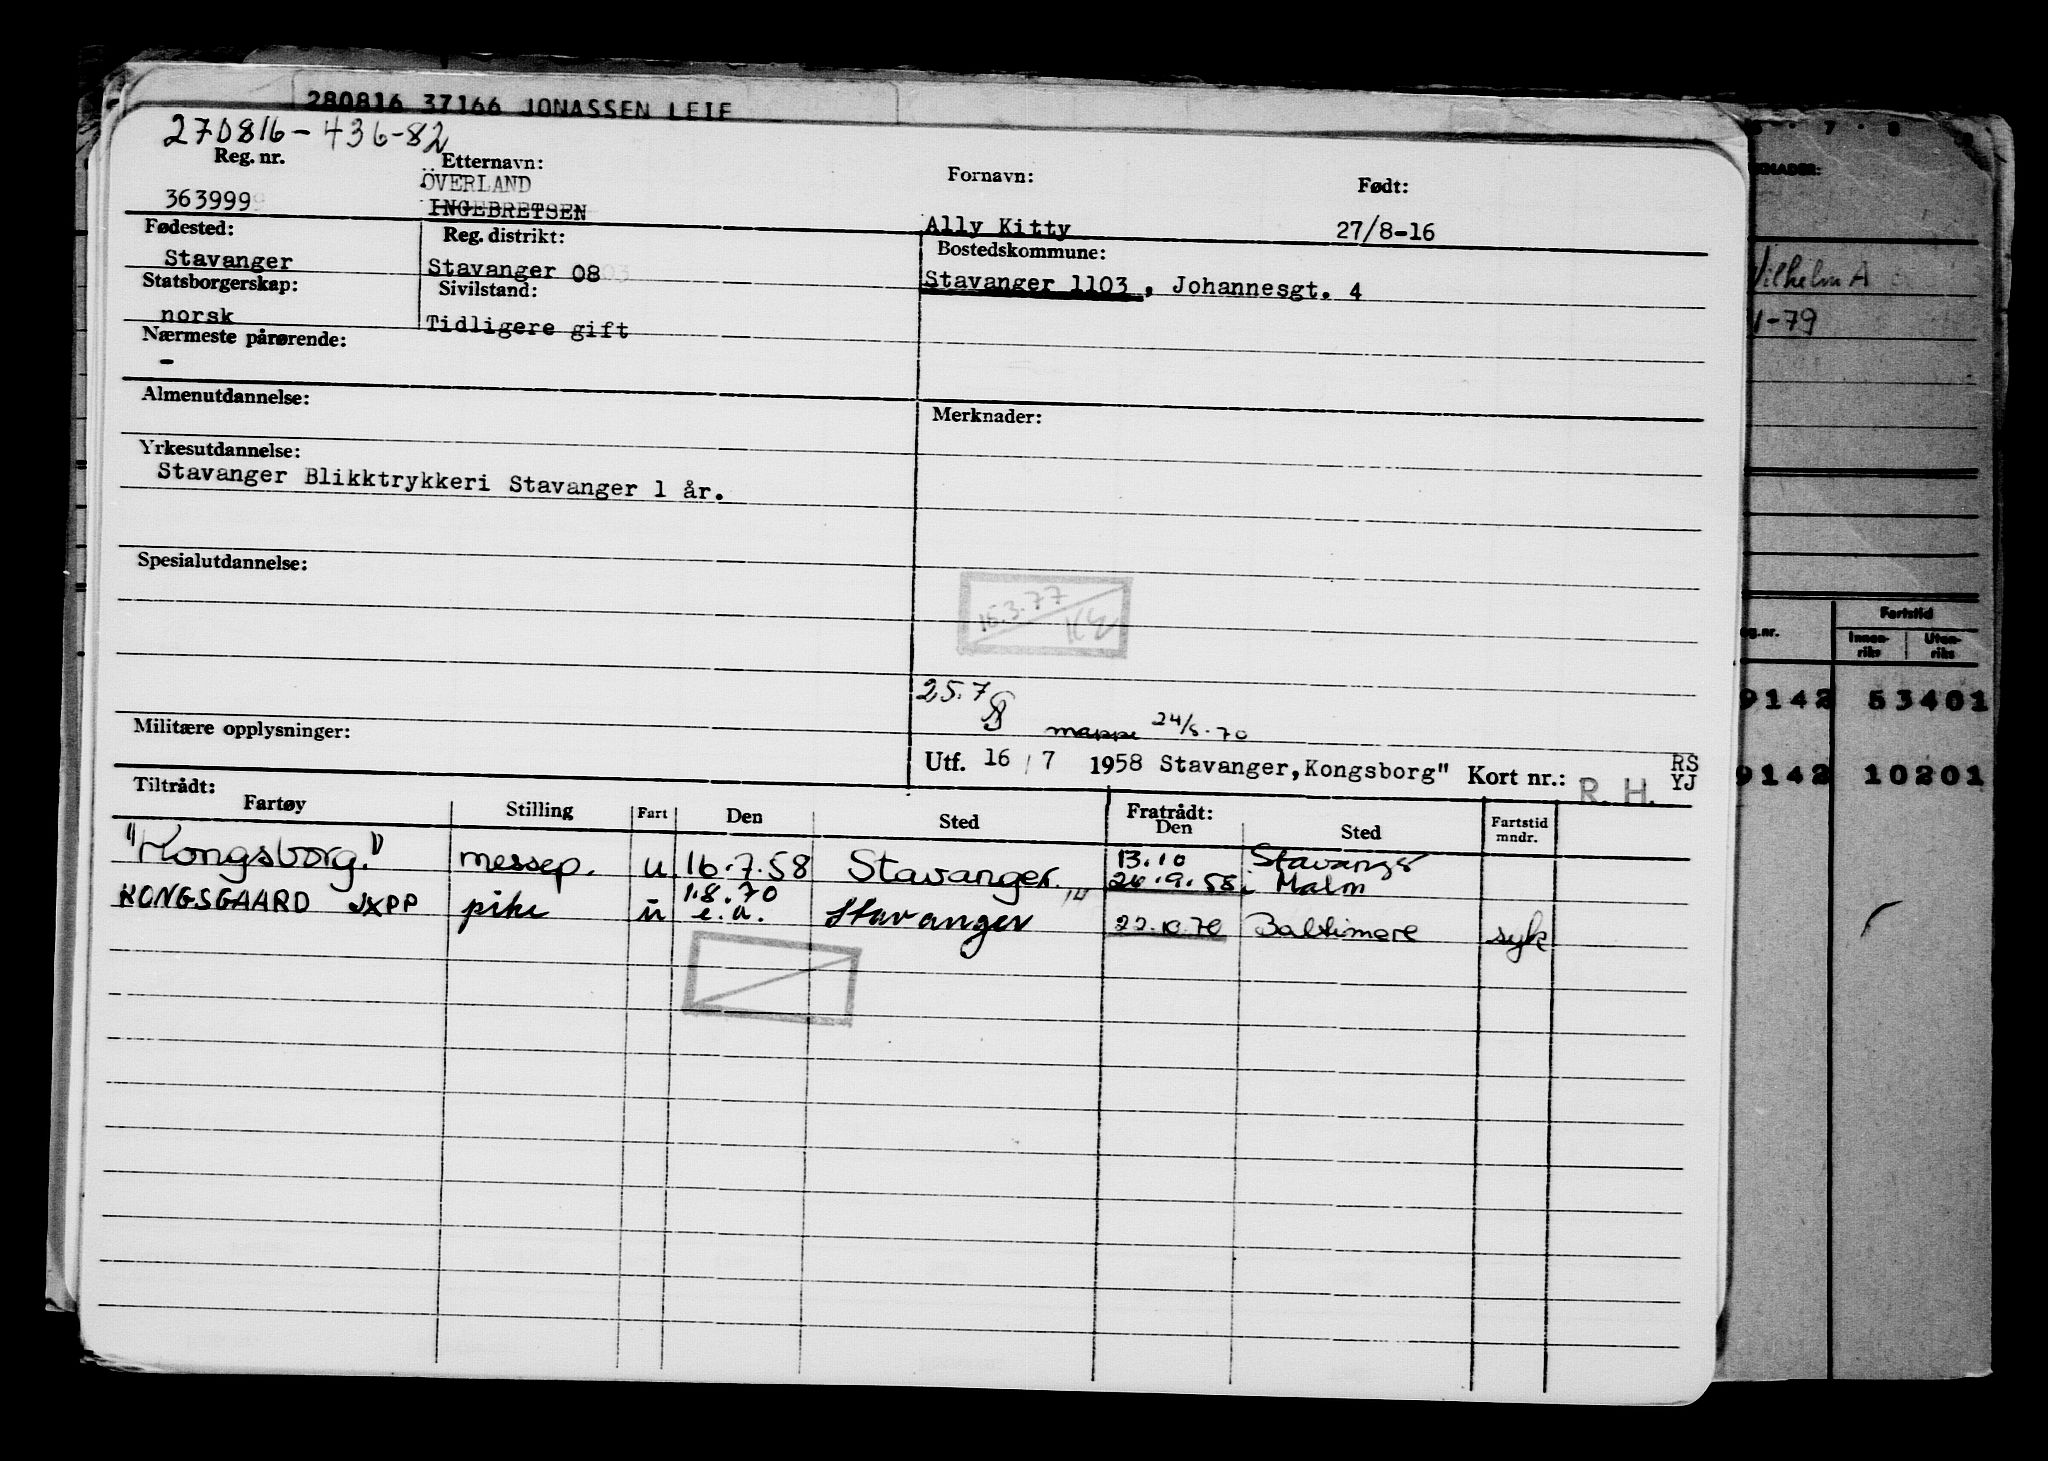 280816 37166 JONASSEN LEIF
270816-436-82
Reg. nr.
Etternavn:
Fornavn:
Født:
ÖVERLAND
363999
INGEBRETSEN
Ally Kitty
27/8-16
Fødested:
Reg. distrikt:
Bostedskommune:
Stavanger
Stavanger 08
Stavanger 1103, Johannesgt. 4
Statsborgerskap:
Sivilstand:
norsk
Tidligere gift
Nærmeste pårørende:
-
Almenutdannelse:
Merknader:
Yrkesutdannelse:
Stavanger Blikktrykkeri Stavanger 1 år.
Spesialutdannelse:
16.3.77
25.7
mappe 24/8.70
Militære opplysninger:
Utf. 16 / 7 1958 Stavanger, Kongsborg" Kort nr.: R. H. RS YJ
Tiltrådt:
Fratrådt:
Fartøy Stilling Fart Den Sted Den Sted Fartstid mndr.
"Kongsborg." messep. u 16.7.58 Stavanger. 13.10 Stavanger
26.9.58 i Malm
KONGSGAARD JXPP pike u 1.8.70 e.a. Stavanger 22.10.70 Baltimore syk
7 . 8
KNADER:
Vilhelm A
1-79
Fartstid
eg.nr.
Innen-riks
Uten-riks
9142 53401
9142 10201